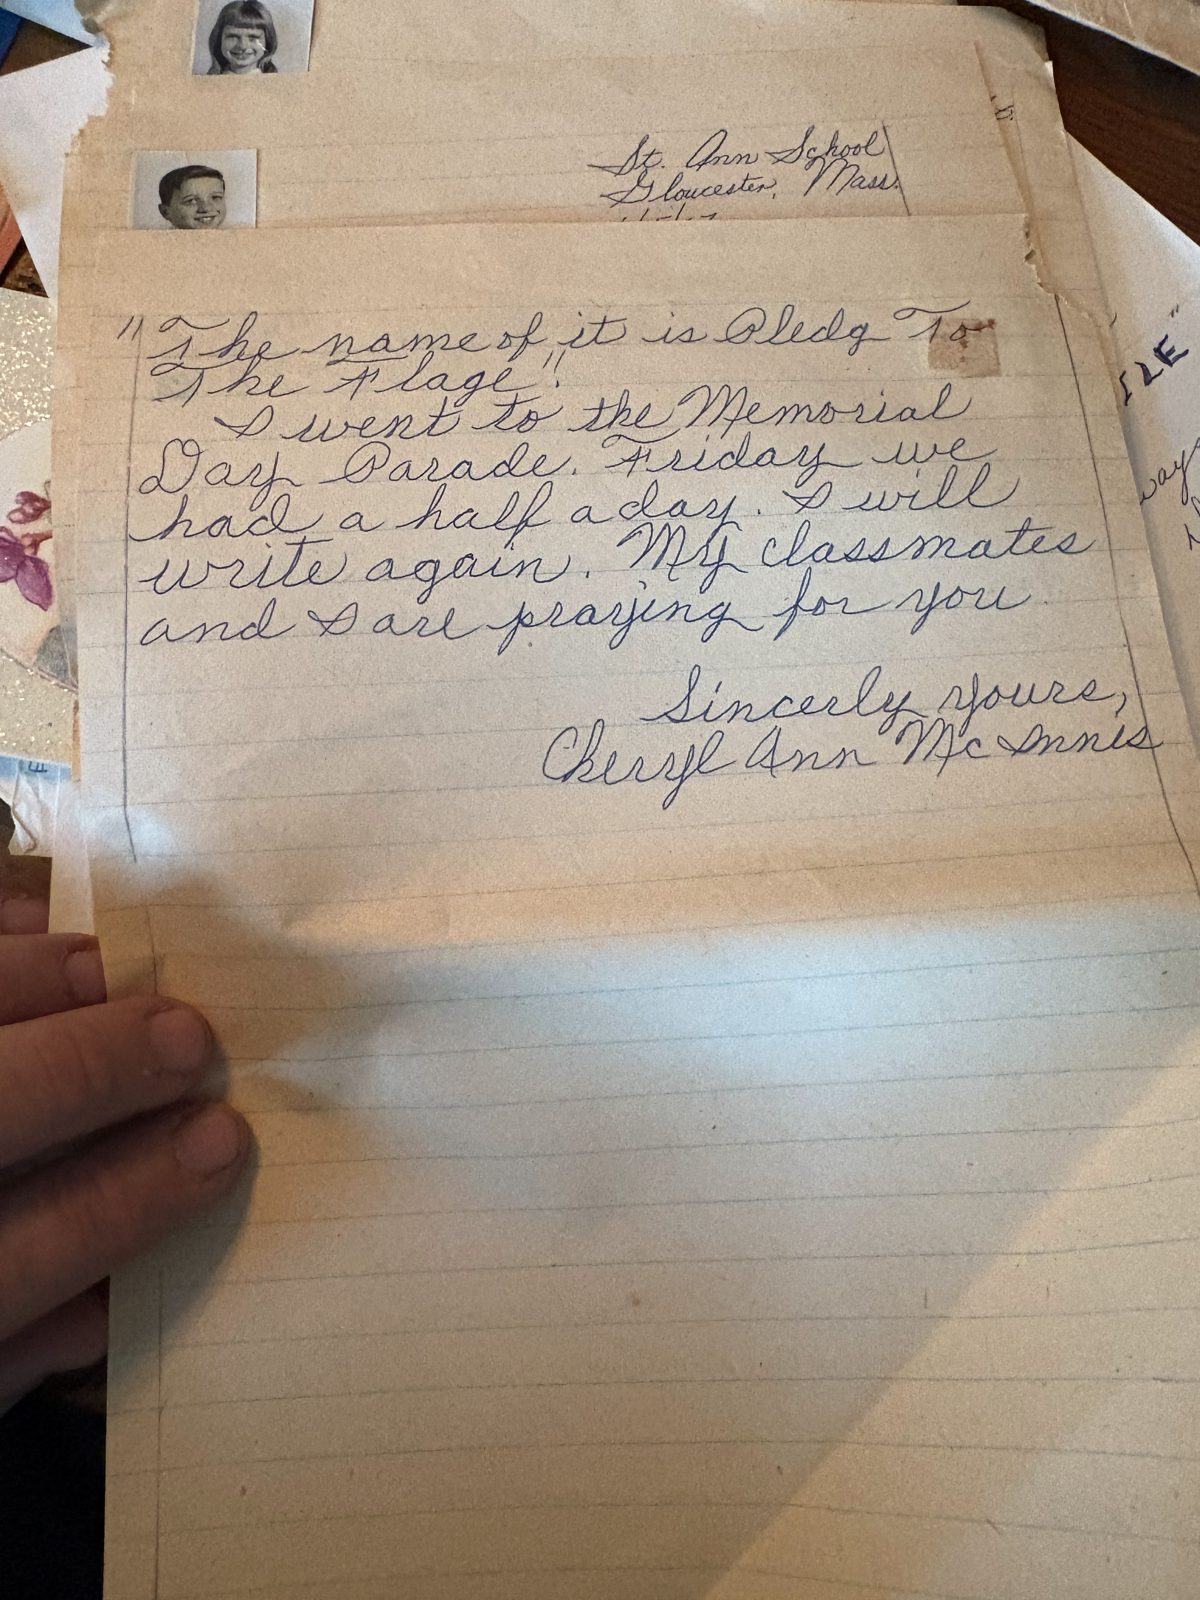 St. Ann School
Gloucester, Mass.
"The name of it is Pledg To
The Flage".
I went to the Memorial
Day Parade. Friday we
had a half a day. I will
write again. My classmates
and I are praying for you.
Sincerly yours,
Cheryl Ann McInnis